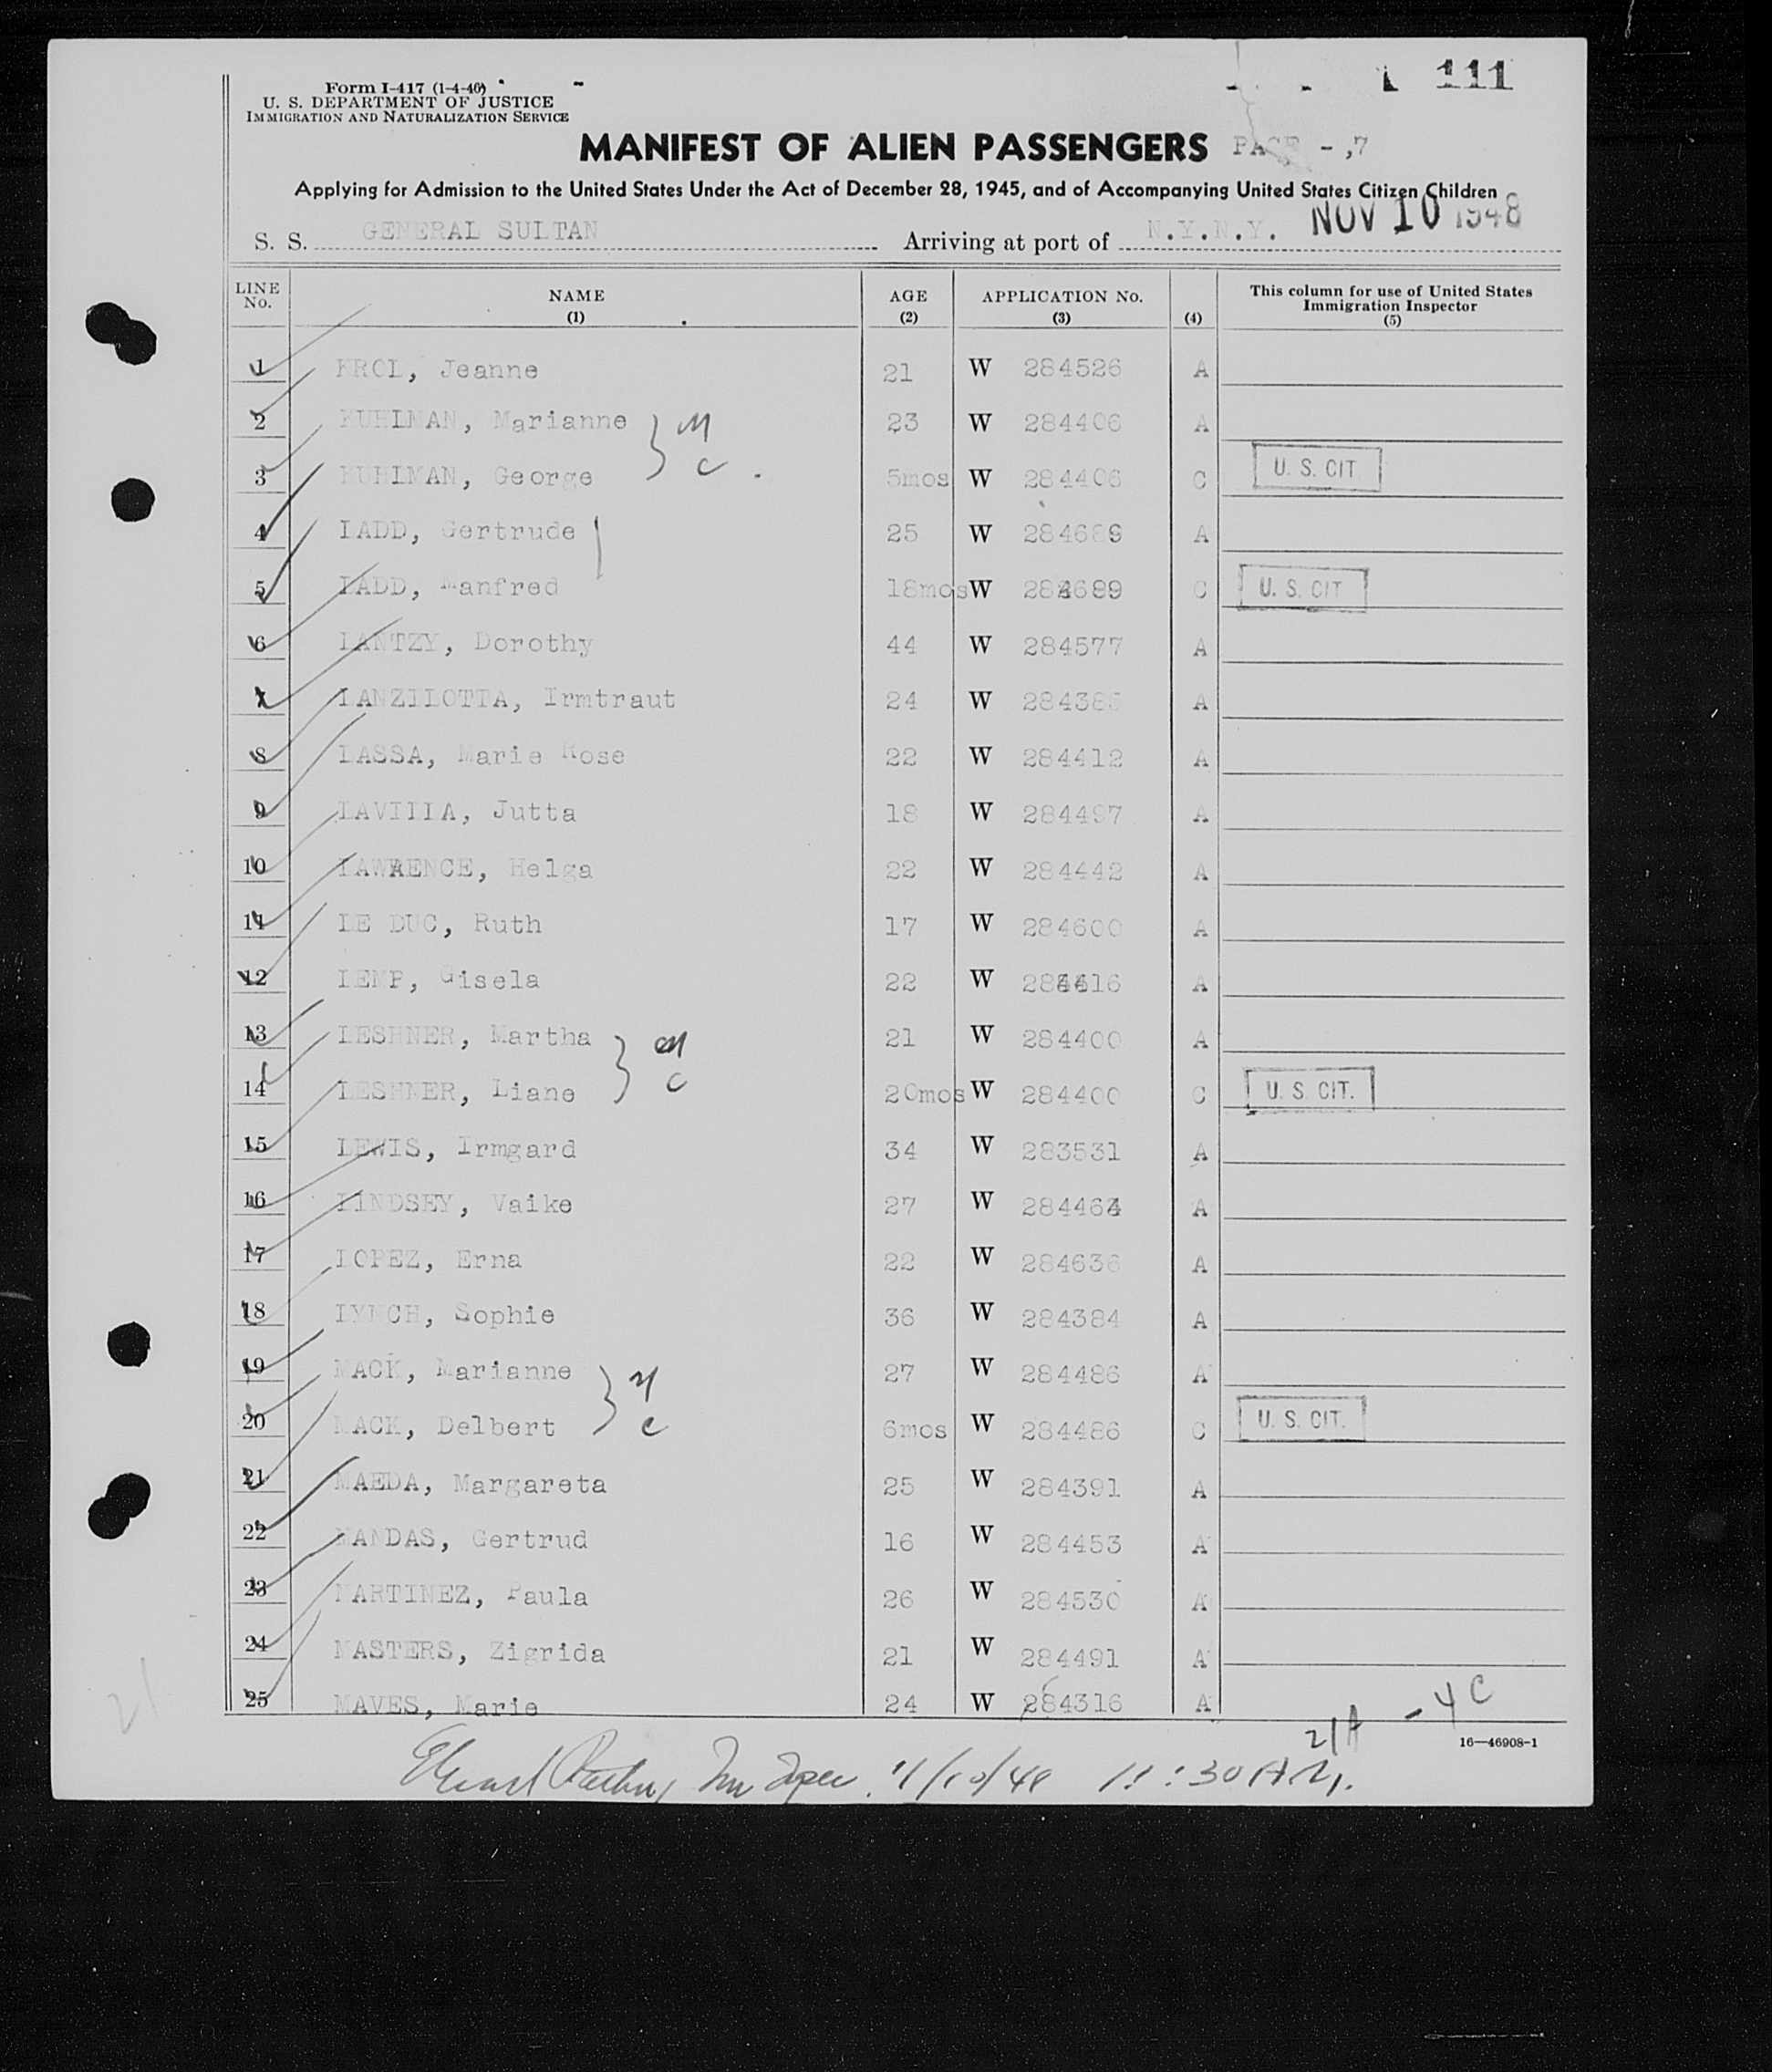 111
Form I-417 (1-4-46)
U. S. DEPARTMENT OF JUSTICE
IMMIGRATION AND NATURALIZATION SERVICE
MANIFEST OF ALIEN PASSENGERS PAGE - 7
Applying for Admission to the United States Under the Act of December 28, 1945, and of Accompanying United States Citizen Children
S. S. GENERAL SULTAN Arriving at port of N.Y.N.Y. NOV 10 1948
LINE No. NAME (1) AGE (2) APPLICATION No. (3) (4) This column for use of United States Immigration Inspector (5)
1 KROL, Jeanne 21 W 284526 A
2 KUHLMAN, Marianne M 23 W 284406 A
3 KUHLMAN, George C 5mos W 284406 C U. S. CIT
4 LADD, Gertrude 25 W 284689 A
5 LADD, Manfred 18mos W 284689 C U. S. CIT
6 LANTZY, Dorothy 44 W 284577 A
7 LANZILOTTA, Irmtraut 24 W 284385 A
8 LASSA, Marie Rose 22 W 284412 A
9 LAVILLA, Jutta 18 W 284497 A
10 LAWRENCE, Helga 22 W 284442 A
11 LE DUC, Ruth 17 W 284600 A
12 LEMP, Gisela 22 W A
13 LESHNER, Martha M 21 W 284400 A
14 LESHNER, Liane C 20mos W 284400 C U. S. CIT.
15 LEWIS, Irmgard 34 W 283531 A
16 LINDSEY, Vaike 27 W 284464 A
17 LOPEZ, Erna 22 W 284636 A
18 LYNCH, Sophie 36 W 284384 A
19 MACK, Marianne M 27 W 284486 A
20 MACK, Delbert C 6mos W 284486 C U. S. CIT.
21 MAEDA, Margareta 25 W 284391 A
22 MANDAS, Gertrud 16 W 284453 A
23 MARTINEZ, Paula 26 W 284530 A
24 MASTERS, Zigrida 21 W 284491 A
25 MAVES, Marie 24 W 284316 A
21A - 4C
16—46908-1
11/10/48 11:30 AM.
21